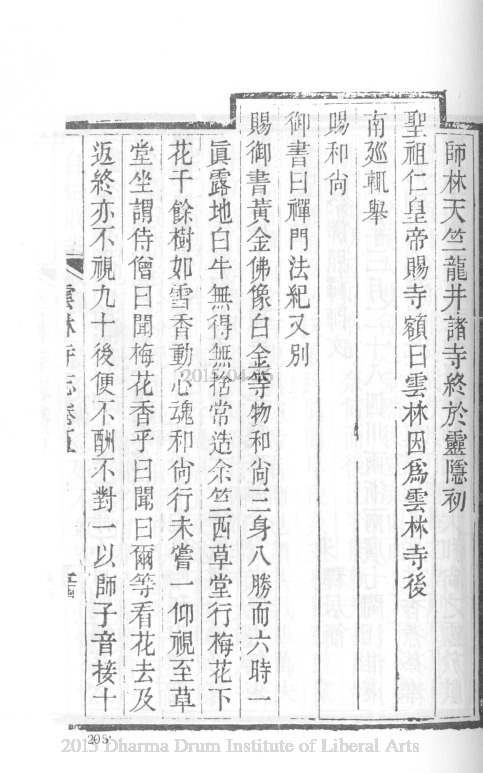 師林天竺龍井諸寺終於靈隱初
聖祖仁皇帝賜寺額曰雲林因爲雲林寺後
南廵輒舉
賜和尙
御書曰禪門法紀又別
賜御書黃金佛像白金等物和尙三身八勝而六時一
眞露地白牛無得無捨常造余竺西草堂行梅花下
花千餘樹如雪香動心魂和尙行未嘗一仰視至草
堂坐謂侍僧曰聞梅花香乎曰聞曰爾等看花去及
返終亦不視九十後便不酬不對一以師子音接十
雲林寺志卷五
205
2013 Dharma Drum Institute of Liberal Arts